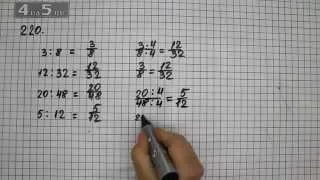 4 на 5 .ru
220.
3:8 = 3/8
12:32 = 12/32
20:48 = 20/48
5:12 = 5/12
3:4/8:4 = 12/32
3/8 = 12/32
20:4/48:4 = 5/12